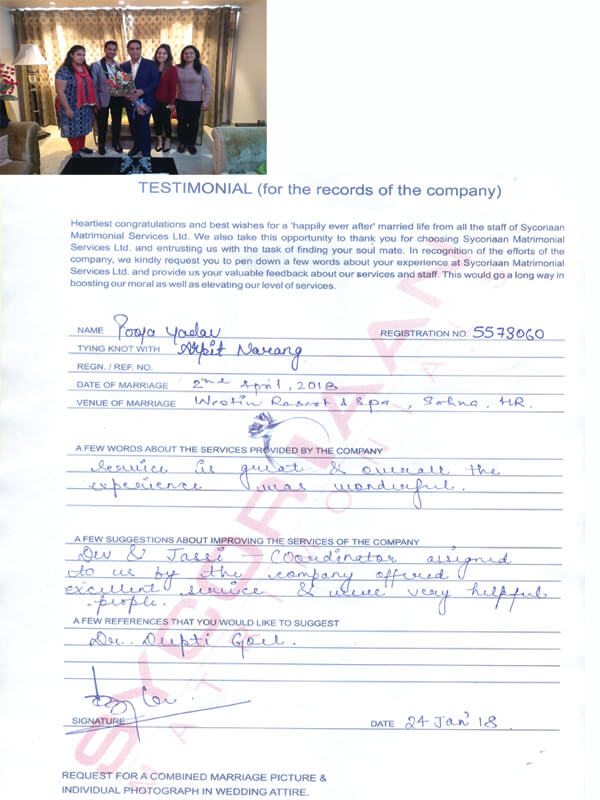 TESTIMONIAL (for the records of the company)
Heartiest congratulations and best wishes for a 'happily ever after' married life from all the staff of Sycoriaan
Matrimonial Services Ltd. We also take this opportunity to thank you for choosing Sycoriaan Matrimonial
Services Ltd. and entrusting us with the task of finding your soul mate. In recognition of the efforts of the
company, we kindly request you to pen down a few words about your experience at Sycoriaan Matrimonial
Services Ltd. and provide us your valuable feedback about our services and staff. This would go a long way in
boosting our moral as well as elevating our level of services.
NAME Pooja Yadav REGISTRATION NO. 5573060
TYING KNOT WITH Arpit Narang
REGN. / REF. NO.
DATE OF MARRIAGE 2nd April, 2018
VENUE OF MARRIAGE Westin Resort & Spa, Sohna, HR.
A FEW WORDS ABOUT THE SERVICES PROVIDED BY THE COMPANY
Service is great & overall the
experience was wonderful.
A FEW SUGGESTIONS ABOUT IMPROVING THE SERVICES OF THE COMPANY
Dev & Jassi - Coordinator assigned
to us by the company offered
excellent service & were very helpful
people.
A FEW REFERENCES THAT YOU WOULD LIKE TO SUGGEST
Dr. Deepti Goel.
SIGNATURE DATE 24 Jan' 18
REQUEST FOR A COMBINED MARRIAGE PICTURE &
INDIVIDUAL PHOTOGRAPH IN WEDDING ATTIRE.
SYCORIAAN
MATRIMONIALS